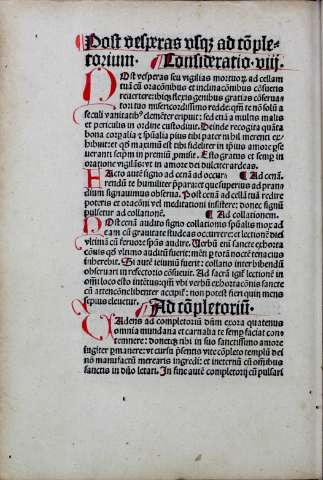 Post vesperas vsqꝫ ad cōple-
torium. Consideratio .viij.
POst vesperas seu vigilias mortuoꝝ ad cellam
tuā cū orationibus et inclinationibus cōsuetis
reuertere: ibiqꝫ flexis genibus gratias cōserua
tori tuo misericordissimo redde: qm̄ te nō solū a
seculi vanitatibꝰ clemēter eripuit: sed etiā a multis malis
et periculis in ordine custodiuit. Deinde recogita quāta
bona corꝑalia et sp̄ualia pius tibi pater nihil merenti ex-
hibuit: et qd̓ maximū est tibi fideliter in ip̄ius amore ꝑse
ueranti seip̄m in premiū ꝓmisit. Esto gratus et semꝑ in
oratione vigilans: vt in amore dei dulciter ardeas.
HActo autē signo ad cenā cū ad
rendū te humiliter p̄para: et que superius ad pran
dium signauimus obserua. Post cenā ad cellā tuā redire
poteris et orationi vel meditationi insistere: donec signū
pulsetur ad collationē. Ad collationem.
POst cenā audito signo collationis sp̄ualis more
eam cū grauitate studeas occurrere: et lectionē diei
vltimā cū feruore sp̄us audire. Verbū eni sancte exhorta
tiōis qd̓ vltimo auditū fuerit: mēti tota nocte tenacius
inherebit. Si autē ieiuniū fuerit: collatio inter bibendū
obseruari in refectorio cōsueuit. Ad sacrā igiť lectionē in
om̄i loco esto intētus: qm̄ vbi verbū exhortatōnis sancte
cū attentiōne libenter accipiť: non potest fieri quin mens
sepius eleuetur. Ad cōpletoriū.
VAdens ad completoriū dn̄m exora quatenus
omnia mundana et carnalia te semꝑ faciat con
temnere: donecqꝫ tibi in suo sanctissimo amore
iugiter ꝑmanere: vt cursu p̄sentis vite cōpleto templū dei
nō manufactū merearis ingredi: et ineternū cū omnibus
sanctis in dn̄o letari. In fine autē completorij cū pulsari